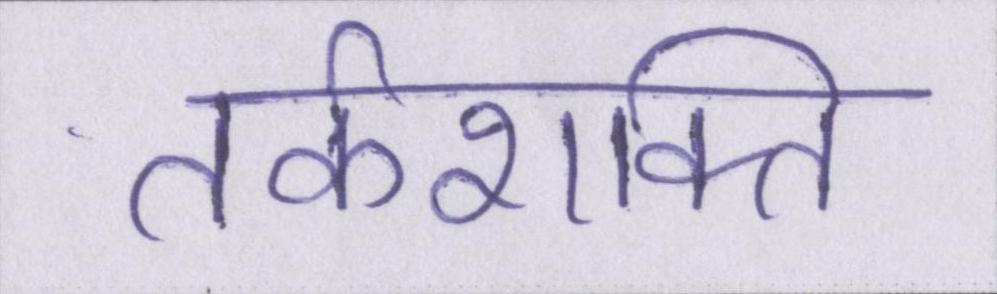 तर्कशक्ति